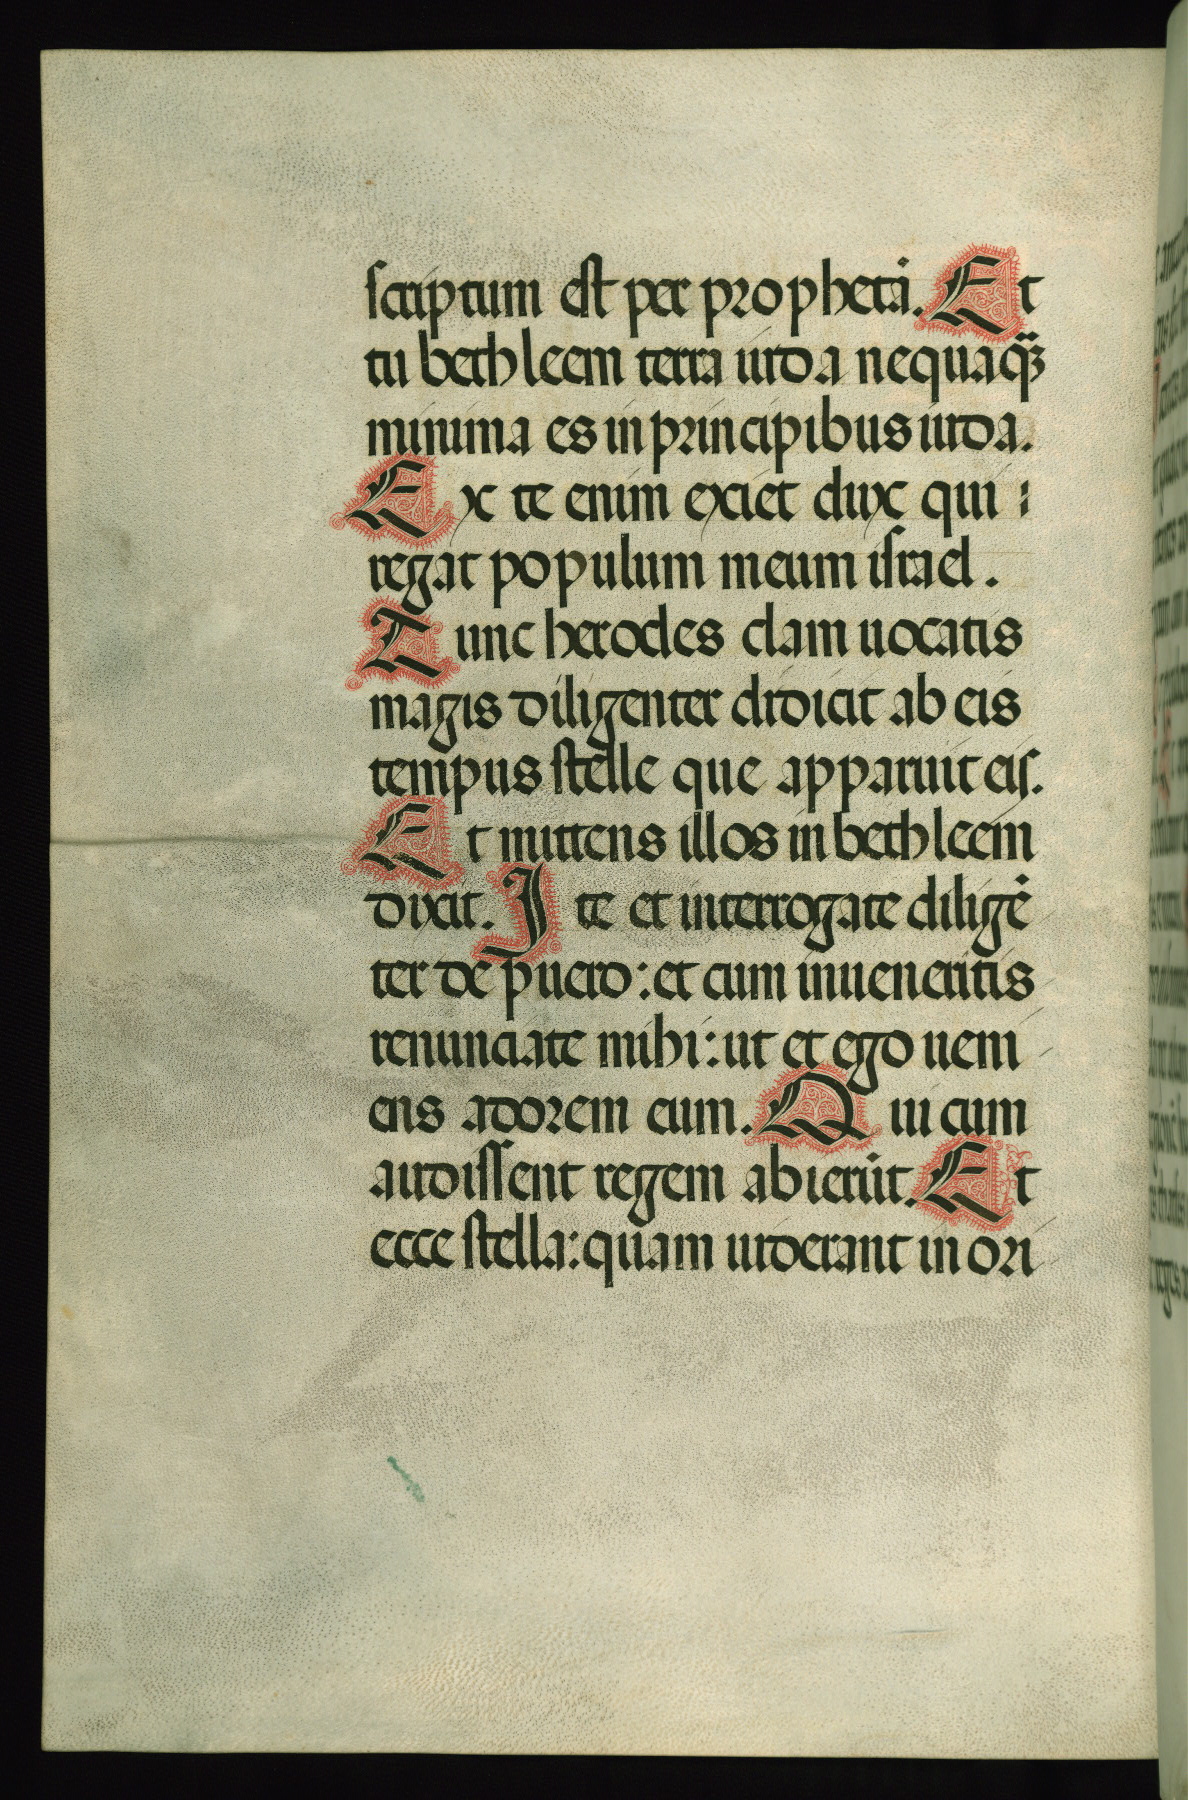 scriptum est per prophetā. Et
tu bethleem terra iuda nequaq̄ʒ
minima es in principibus iuda.
Ex te enim exiet dux qui
regat populum meum israel.
Tunc herodes clam uocatis
magis diligenter didicit ab eis
tempus stelle que apparuit eis.
Et mittens illos in bethleem
dixit. Ite et interrogate diligē
ter de puero: et cum inueneritis
renunciate mihi: ut et ego ueni
ens adorem eum. Qui cum
audissent regem abierūt. Et
ecce stella: quam uiderant in ori